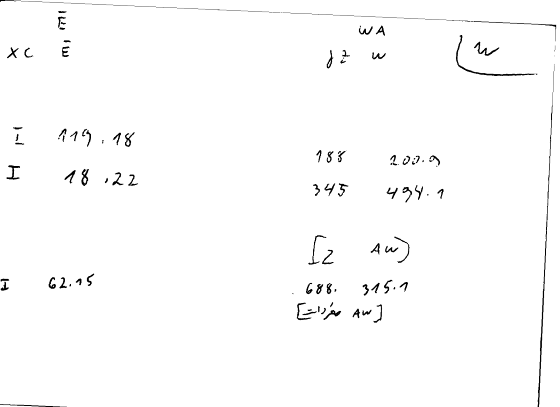 Ē
WA
XC Ē
γz w
W
Ī 119.18
188 200.9
I 18.22
345 494.1
[Z AW)
I 62.15
688. 315.1
[مفردات AW]